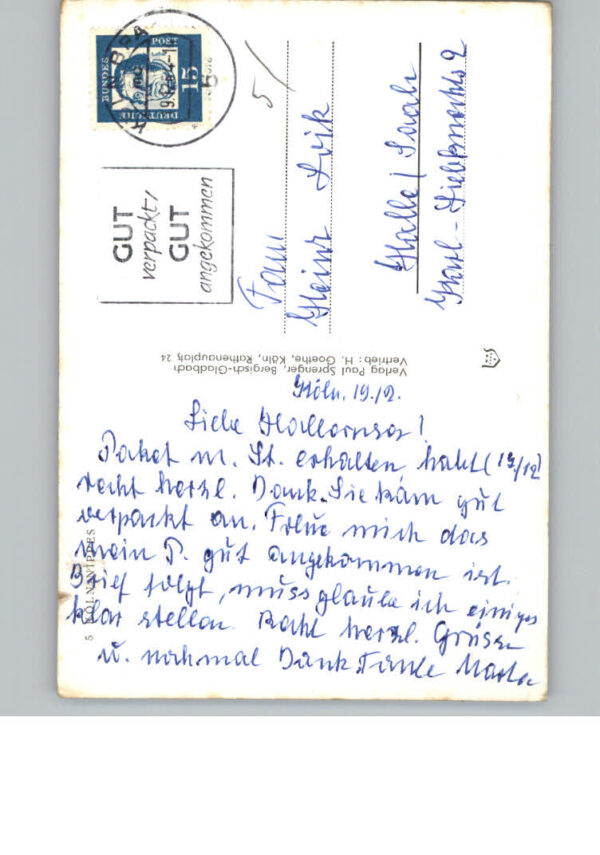 DEUTSCHE
BUNDES
POST
15
GUT
verpackt,
GUT
angekommen
5/
Heinz
Halle/Saale
Karl-Liebknechts 2
Verlag Paul Sprenger, Bergisch-Gladbach
Vertrieb: H. Goethe, Köln, Rathenauplatz 24
Köln. 19./2.
Liebe
Paket m. St. erhalten habt (17/12)
recht herzl. Dank. Sie kam gut
verpackt an. Freue mich das
mein P. gut angekommen ist.
Brief folgt, muss glaube ich einiges
klar stellen. Recht herzl. Grüsse
u. nochmal Dank Tante